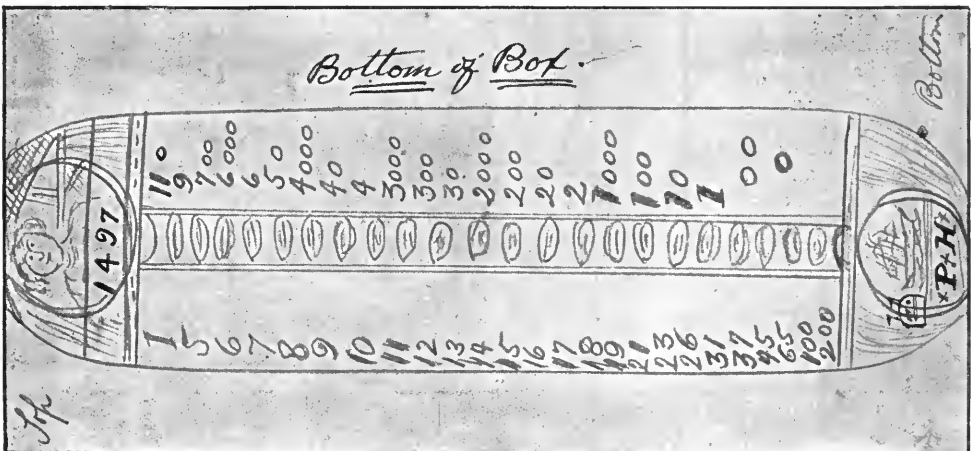 Bottom of Box.
Bottom
110 9 700 6000 6 50 4000 40 4 3000 300 30 2000 200 20 2 1000 100 10 1 00 0
1497
P H
1 5 6 7 8 9 10 11 12 13 14 15 16 17 18 19 21 23 26 31 37 45 65 100 200
Top